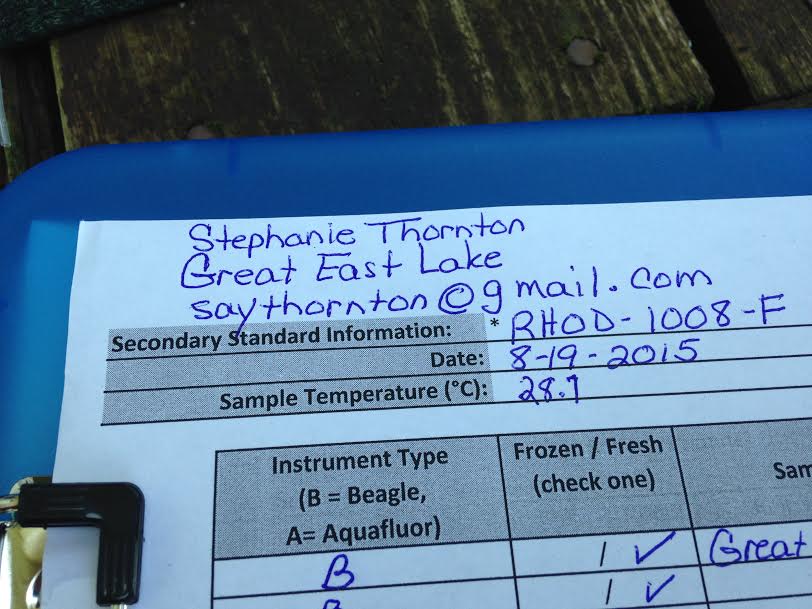 Stephanie Thornton
Great East Lake
saythornton@gmail.com
Secondary Standard Information: * RHOD-1008-F
Date: 8-19-2015
Sample Temperature (°C): 28.7
Instrument Type
(B = Beagle,
A= Aquafluor)
Frozen / Fresh
(check one)
Sam
B / ✓ Great
B / ✓